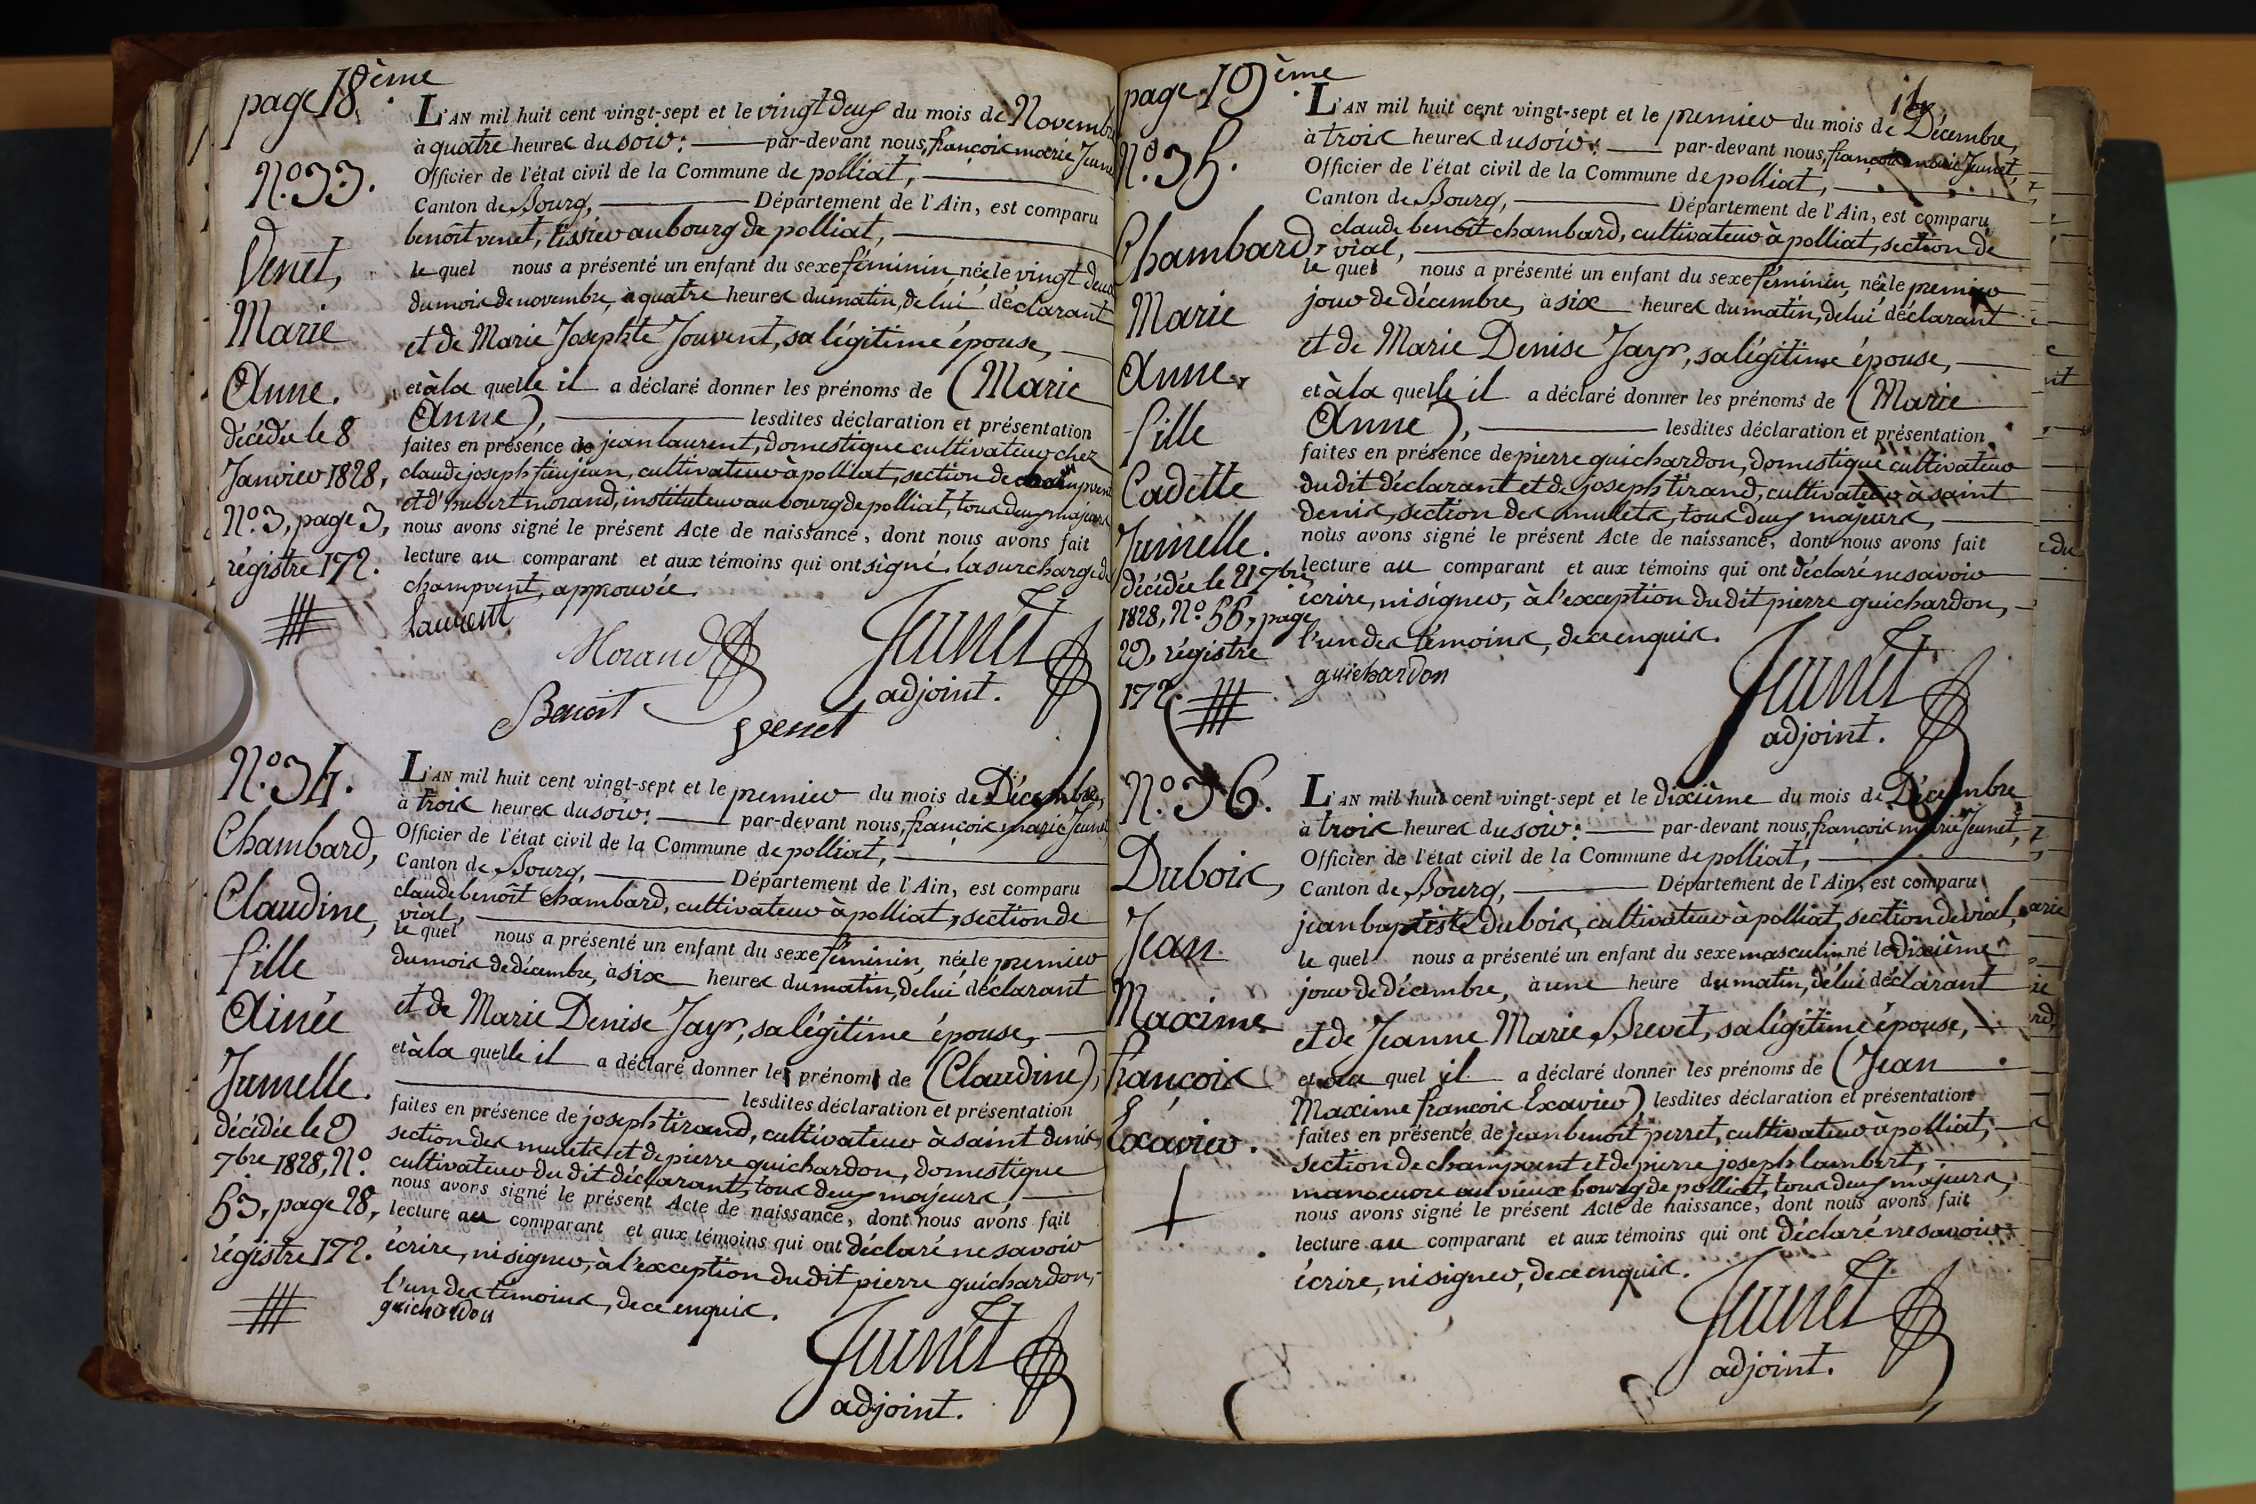 page 18ème
N.º 33.
Venet,
Marie
Anne.
décédée le 8
Janvier 1828,
N.º 3, page 3,
régistre 172.
L'AN mil huit cent vingt-sept et le vingt deux du mois de Novembre
à quatre heures du soir: par-devant nous, françois marie Jeunet
Officier de l'état civil de la Commune de polliat,
Canton de Bourg, Département de l'Ain, est comparu
benoît venet, tissier au bourg de polliat,
le quel nous a présenté un enfant du sexe féminin, née le vingt deux
du mois de novembre, à quatre heures du matin, de lui déclarant
et de Marie Josephte Jouvent, sa légitime épouse,
et à la quelle il a déclaré donner les prénoms de (Marie
Anne), lesdites déclaration et présentation
faites en présence de jean laurent, domestique cultivateur chez
claude joseph feujean, cultivateur à polliat, section de champvent
et d'hubert morand, instituteur au bourg de polliat, tous deux majeurs
nous avons signé le présent Acte de naissance, dont nous avons fait
lecture au comparant et aux témoins qui ont signé. la surcharge de
champvent, approuvée.
laurent
Morand
Jeunet
adjoint.
Benoit Venet
N.º 34.
Chambard,
Claudine,
fille
Ainée
Jumelle.
décédée le 9
7bre 1828, N.º
53, page 28,
régistre 172.
L'AN mil huit cent vingt-sept et le premier du mois de Décembre,
à trois heures du soir: par-devant nous, françois marie Jeunet,
Officier de l'état civil de la Commune de polliat,
Canton de Bourg, Département de l'Ain, est comparu
claude benoît chambard, cultivateur à polliat, section de
vial,
le quel nous a présenté un enfant du sexe féminin, née le premier
du mois de décembre, à six heures du matin, de lui déclarant
et de Marie Denise Jayr, sa légitime épouse,
et à la quelle il a déclaré donner les prénoms de (Claudine),
lesdites déclaration et présentation
faites en présence de joseph tirand, cultivateur à saint denis,
section des mulets et de pierre guichardon, domestique
cultivateur du dit déclarant, tous deux majeurs,
nous avons signé le présent Acte de naissance, dont nous avons fait
lecture au comparant et aux témoins qui ont déclaré ne savoir
écrire, ni signer, à l'exception du dit pierre guichardon,
l'un des témoins, de ce enquis.
guichardon
Jeunet
adjoint.
page 19ème
N.º 35.
Chambard,
Marie
Anne,
fille
Cadette
Jumelle.
décédée le 21 7bre
1828, N.º 55, page
29, régistre
172.
L'AN mil huit cent vingt-sept et le premier du mois de Décembre,
à trois heures du soir: par-devant nous, françois marie Jeunet,
Officier de l'état civil de la Commune de polliat,
Canton de Bourg, Département de l'Ain, est comparu
claude benoît chambard, cultivateur à polliat, section de
vial,
le quel nous a présenté un enfant du sexe féminin, née le premier
jour de décembre, à six heures du matin, de lui déclarant
et de Marie Denise Jayr, sa légitime épouse,
et à la quelle il a déclaré donner les prénoms de (Marie
Anne), lesdites déclaration et présentation
faites en présence de pierre guichardon, domestique cultivateur
du dit déclarant et de joseph tirand, cultivateur à saint
denis, section des mulets, tous deux majeurs,
nous avons signé le présent Acte de naissance, dont nous avons fait
lecture au comparant et aux témoins qui ont déclaré ne savoir
écrire, ni signer, à l'exception du dit pierre guichardon,
l'un des témoins, de ce enquis.
guichardon
Jeunet
adjoint.
N.º 36.
Dubois,
Jean
Maxime
françois
Exavier.
L'AN mil huit cent vingt-sept et le dixième du mois de Décembre
à trois heures du soir: par-devant nous, françois marie Jeunet,
Officier de l'état civil de la Commune de polliat,
Canton de Bourg, Département de l'Ain, est comparu
jean baptiste dubois, cultivateur à polliat, section de vial,
le quel nous a présenté un enfant du sexe masculin né le dixième
jour de décembre, à une heure du matin, de lui déclarant
et de Jeanne Marie Brevet, sa légitime épouse,
et au quel il a déclaré donner les prénoms de (Jean
Maxime françois Exavier) lesdites déclaration et présentation
faites en présence de jean benoît perret, cultivateur à polliat,
section de champvent et de pierre joseph lambert,
manoeuvre au vieux bourg de polliat, tous deux majeurs,
nous avons signé le présent Acte de naissance, dont nous avons fait
lecture au comparant et aux témoins qui ont déclaré ne savoir
écrire, ni signer, de ce enquis.
Jeunet
adjoint.